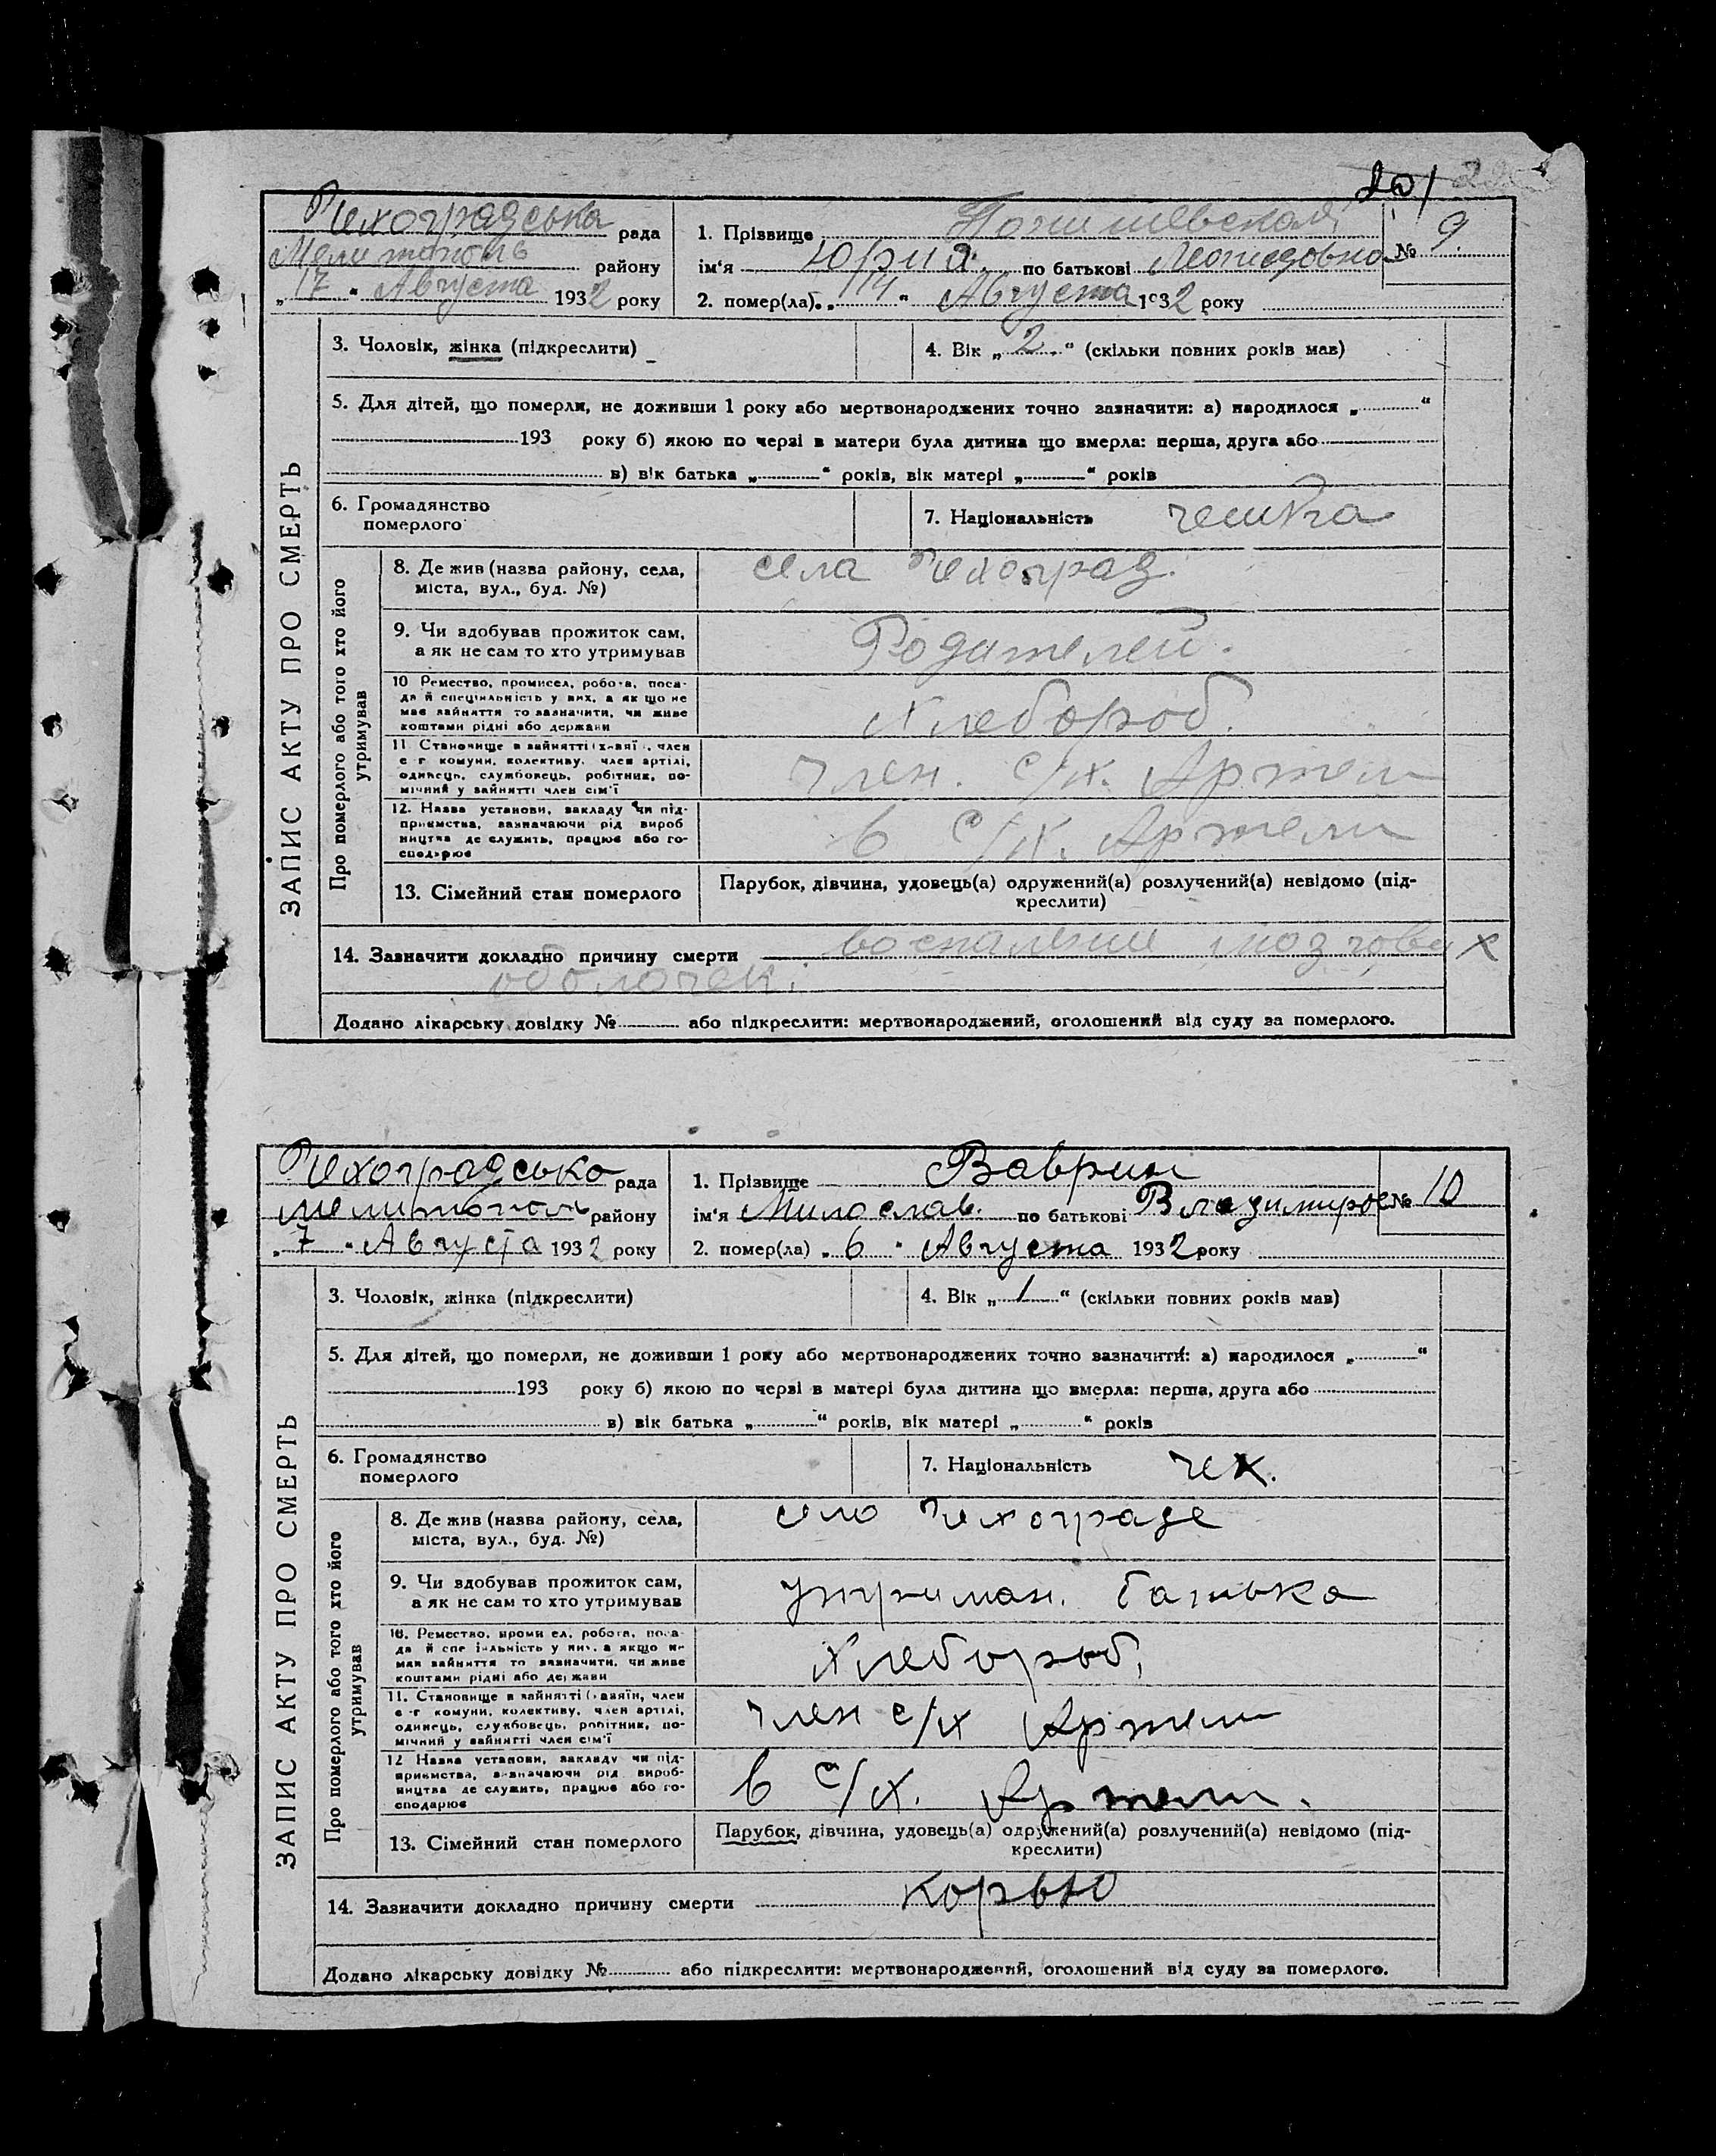 201
Чехоградська рада
Мелитополь району
„17" Августа 1932 року
1. Прізвище
ім'я Юрия по батькові Леонидовна
№ 9.
2. помер(ла) „14" Августа 1932 року
ЗАПИС АКТУ ПРО СМЕРТЬ
3. Чоловік, жінка (підкреслити)
4. Вік „2" (скільки повних років мав)
5. Для дітей, що померли, не доживши 1 року або мертвонароджених точно зазначити: а) народилося „......"
193 року б) якою по черзі в матери була дитина що вмерла: перша, друга або
в) вік батька „......" років, вік матері „......" років
6. Громадянство
померлого
7. Національність чешка
Про померлого або того хто його
утримував
8. Де жив (назва району, села,
міста, вул., буд. №)
села Чехоград.
9. Чи здобував прожиток сам,
а як не сам то хто утримував
Родителей.
10 Ремество, промисел, робота, поса-
да й спеціяльність у них, а як що не
має зайняття то зазначити, чи живе
коштами рідні або держави
Хлебороб.
11. Становище в зайнятті (хазяїн, член
с-г комуни, колективу, член артілі,
одинець, службовець, робітник, по-
мічний у зайнятті член сім'ї
член. с/х. Артели
12. Назва установи, закладу чи під-
приємства, зазначаючи рід вироб
ництва де служить, працює або го-
сподарює
в с/х. Артели
13. Сімейний стан померлого
Парубок, дівчина, удовець(а) одружений(а) розлучений(а) невідомо (під-
креслити)
14. Зазначити докладно причину смерти воспаление мозгови х
оболочек.
Додано лікарську довідку №...... або підкреслити: мертвонароджений, оголошений від суду за померлого.
Чехоградсько рада
мелитополь району
„7" Августа 1932 року
1. Прізвище Ваврин
ім'я Милослав. по батькові Владимиров
№ 10
2. помер(ла) „6" Августа 1932 року
ЗАПИС АКТУ ПРО СМЕРТЬ
3. Чоловік, жінка (підкреслити)
4. Вік „1" (скільки повних років мав)
5. Для дітей, що померли, не доживши 1 року або мертвонароджених точно зазначити: а) народилося „......"
193 року б) якою по черзі в матері була дитина що вмерла: перша, друга або
в) вік батька „......" років, вік матері „......" років
6. Громадянство
померлого
7. Національність чех.
Про померлого або того хто його
утримував
8. Де жив (назва району, села,
міста, вул., буд. №)
село Чехограде
9. Чи здобував прожиток сам,
а як не сам то хто утримував
утриман. батька
10. Ремество, промисел, робота, поса-
да й спеціяльність у них, а якщо не
має зайняття то зазначити, чи живе
коштами рідні або держави
Хлебороб,
11. Становище в зайнятті (хазяїн, член
с-г комуни, колективу, член артілі,
одинець, службовець, робітник, по-
мічний у зайнятті член сім'ї
член с/х Артели
12 Назва установи, закладу чи під-
приємства, зазначаючи рід вироб-
ництва де служить, працює або го-
сподарює
в с/х. Артели.
13. Сімейний стан померлого
Парубок, дівчина, удовець(а) одружений(а) розлучений(а) невідомо (під-
креслити)
14. Зазначити докладно причину смерти корью
Додано лікарську довідку №...... або підкреслити: мертвонароджений, оголошений від суду за померлого.